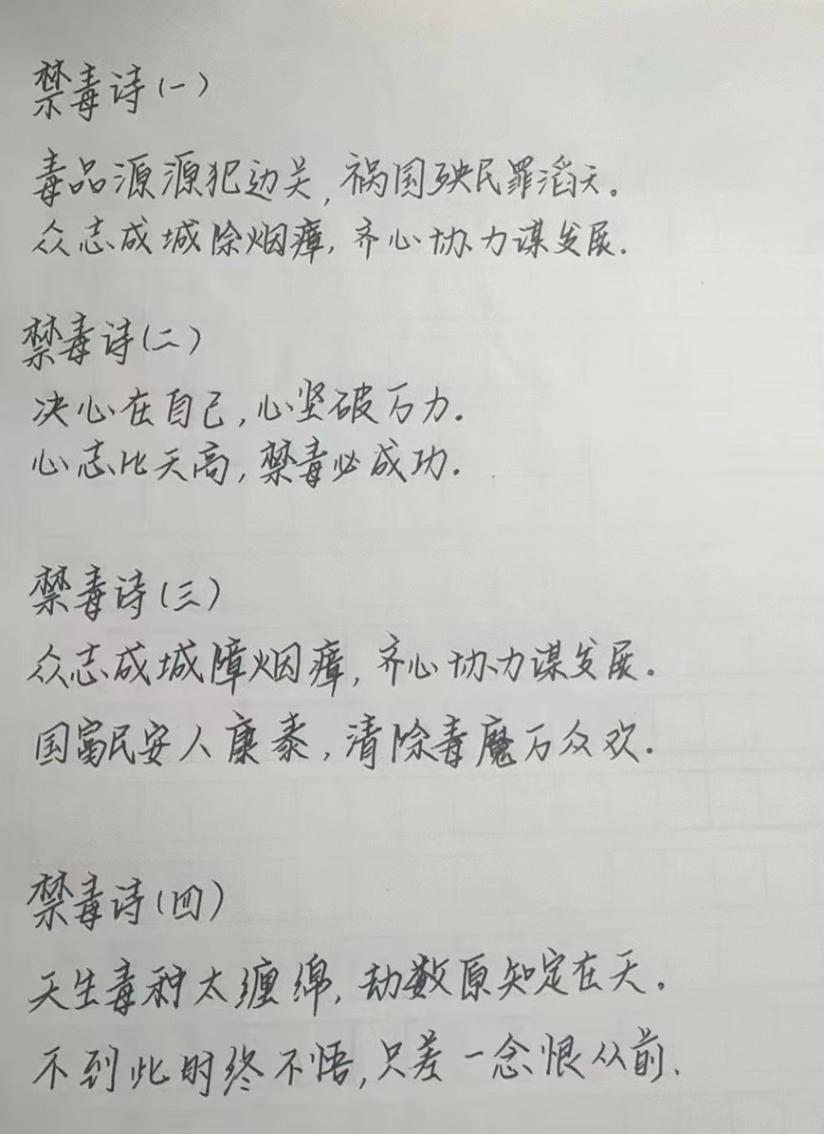 禁毒诗(一)
毒品源源犯边关,祸国殃民罪滔天。
众志成城除烟瘴,齐心协力谋发展.
禁毒诗(二)
决心在自己,心坚破万力.
心志比天高,禁毒必成功.
禁毒诗(三)
众志成城障烟瘴,齐心协力谋发展.
国富民安人康泰,清除毒魔万众欢.
禁毒诗(四)
天生毒种太缠绵,劫数原知定在天。
不到此时终不悟,只差一念恨从前.